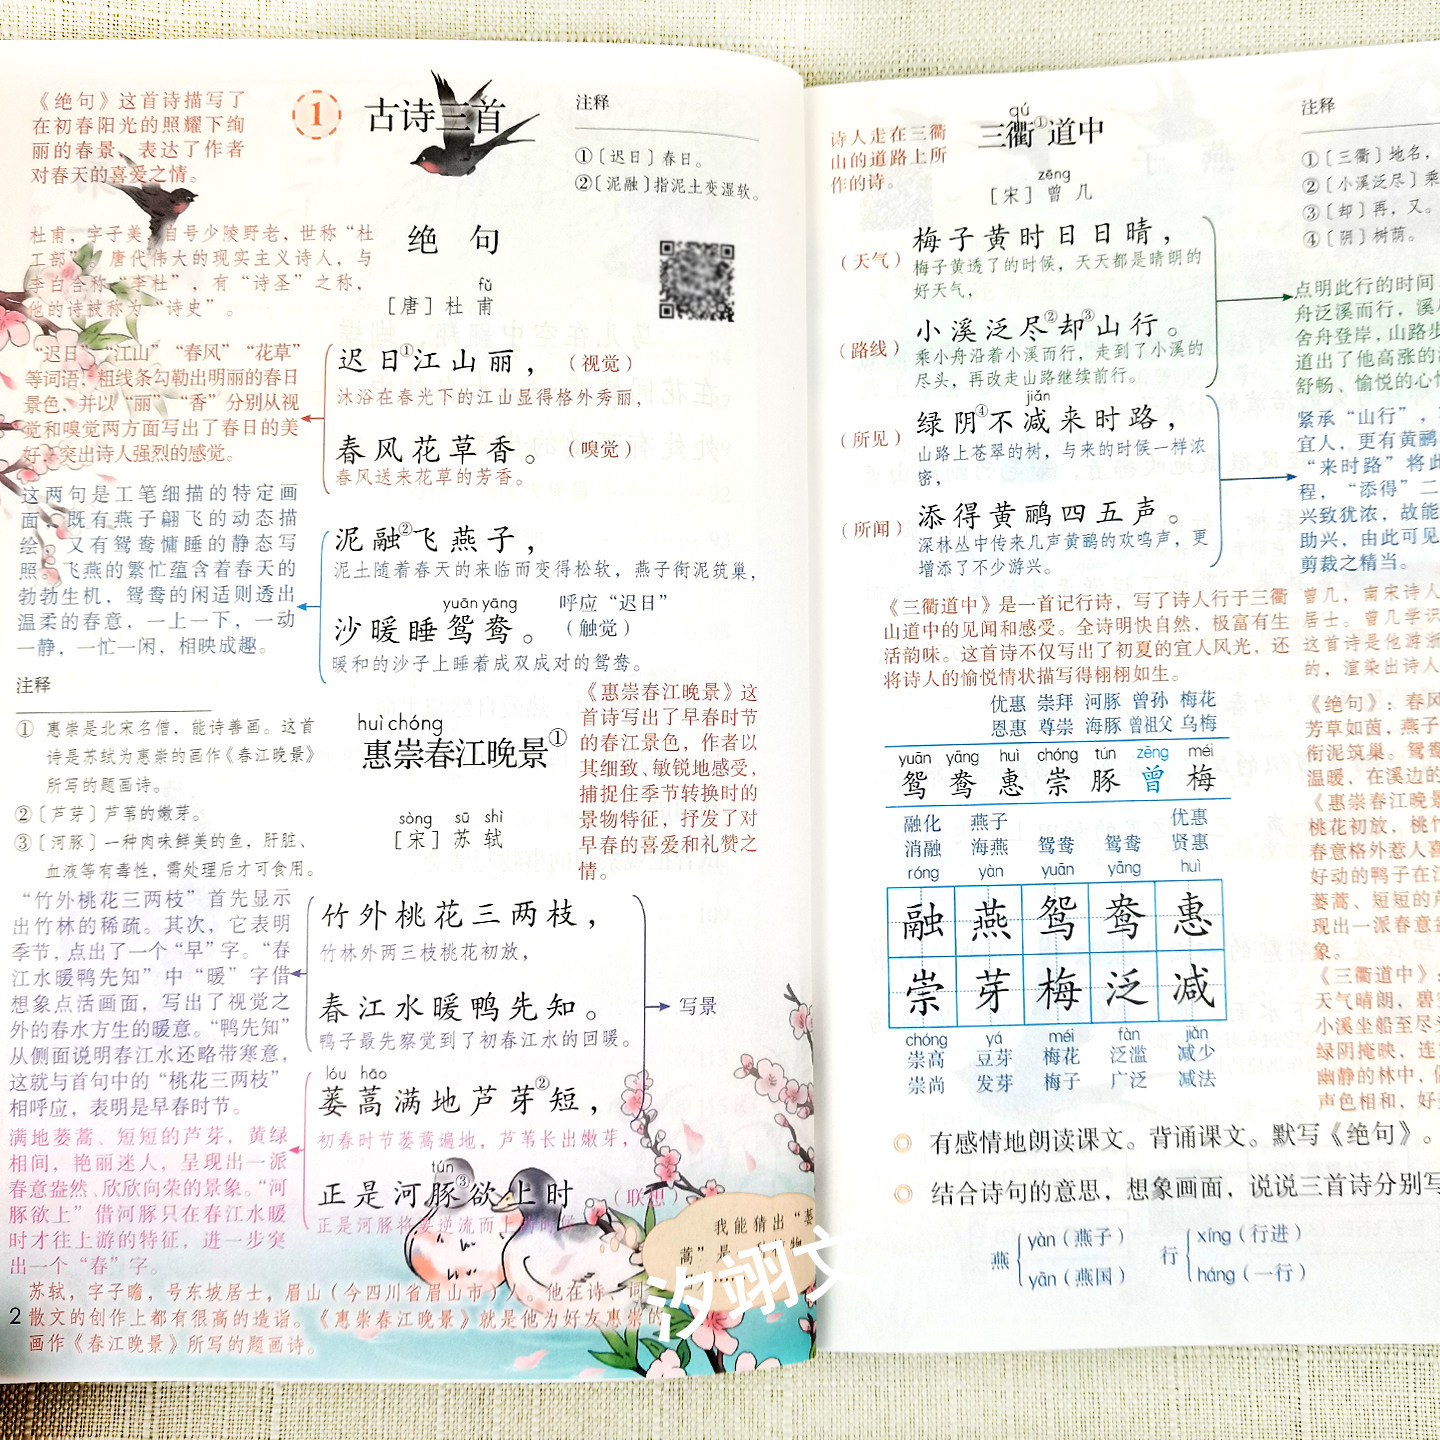 《绝句》这首诗描写了
在初春阳光的照耀下绚
丽的春景，表达了作者
对春天的喜爱之情。
1 古诗三首
注释
①〔迟日〕春日。
②〔泥融〕指泥土变湿软。
杜甫，字子美，自号少陵野老，世称“杜
工部”，唐代伟大的现实主义诗人，与
李白合称“李杜”，有“诗圣”之称，
他的诗被称为“诗史”。
绝 句
fǔ
［唐］杜 甫
“迟日”“江山”“春风”“花草”
等词语，粗线条勾勒出明丽的春日
景色，并以“丽”“香”分别从视
觉和嗅觉两方面写出了春日的美
好，突出诗人强烈的感觉。
迟日①江山丽，（视觉）
沐浴在春光下的江山显得格外秀丽，
春风花草香。（嗅觉）
春风送来花草的芳香。
这两句是工笔细描的特定画
面，既有燕子翩飞的动态描
绘，又有鸳鸯慵睡的静态写
照。飞燕的繁忙蕴含着春天的
勃勃生机，鸳鸯的闲适则透出
温柔的春意，一上一下，一动
一静，一忙一闲，相映成趣。
泥融②飞燕子，
泥土随着春天的来临而变得松软，燕子衔泥筑巢，
yuān yāng 呼应“迟日”
沙暖睡鸳鸯。（触觉）
暖和的沙子上睡着成双成对的鸳鸯。
注释
① 惠崇是北宋名僧，能诗善画。这首
诗是苏轼为惠崇的画作《春江晚景》
所写的题画诗。
②〔芦芽〕芦苇的嫩芽。
③〔河豚〕一种肉味鲜美的鱼，肝脏、
血液等有毒性，需处理后才可食用。
huì chóng
惠崇春江晚景①
sòng sū shì
［宋］苏 轼
《惠崇春江晚景》这
首诗写出了早春时节
的春江景色，作者以
其细致、敏锐地感受，
捕捉住季节转换时的
景物特征，抒发了对
早春的喜爱和礼赞之
情。
“竹外桃花三两枝”首先显示
出竹林的稀疏。其次，它表明
季节，点出了一个“早”字。“春
江水暖鸭先知”中“暖”字借
想象点活画面，写出了视觉之
外的春水方生的暖意。“鸭先知”
从侧面说明春江水还略带寒意，
这就与首句中的“桃花三两枝”
相呼应，表明是早春时节。
竹外桃花三两枝，
竹林外两三枝桃花初放，
春江水暖鸭先知。
鸭子最先察觉到了初春江水的回暖。
写景
lóu hāo
蒌蒿满地芦芽②短，
初春时节蒌蒿遍地，芦苇长出嫩芽，
tún
正是河豚③欲上时（联想）
正是河豚将要逆流而上的时候
满地蒌蒿、短短的芦芽，黄绿
相间，艳丽迷人，呈现出一派
春意盎然、欣欣向荣的景象。“河
豚欲上”借河豚只在春江水暖
时才往上游的特征，进一步突
出一个“春”字。
我能猜出“蒌
蒿”是
苏轼，字子瞻，号东坡居士，眉山（今四川省眉山市）人。他在诗、词、
散文的创作上都有很高的造诣。《惠崇春江晚景》就是他为好友惠崇的
画作《春江晚景》所写的题画诗。
2
汐翊文
诗人走在三衢
山的道路上所
作的诗。
qú
三衢①道中
zēng
［宋］曾 几
注释
①〔三衢〕地名，
②〔小溪泛尽〕乘
③〔却〕再，又。
④〔阴〕树荫。
（天气）梅子黄时日日晴，
梅子黄透了的时候，天天都是晴朗的
好天气，
（路线）小溪泛尽②却③山行。
乘小舟沿着小溪而行，走到了小溪的
尽头，再改走山路继续前行。
jiǎn
（所见）绿阴④不减来时路，
山路上苍翠的树，与来的时候一样浓
密，
（所闻）添得黄鹂四五声。
深林丛中传来几声黄鹂的欢鸣声，更
增添了不少游兴。
点明此行的时间
舟泛溪而行，溪尽
舍舟登岸，山路步
道出了他高涨的
舒畅、愉悦的心情
紧承“山行”，
宜人，更有黄鹂
“来时路”将此
程，“添得”二
兴致犹浓，故能
助兴，由此可见
剪裁之精当。
《三衢道中》是一首记行诗，写了诗人行于三衢
山道中的见闻和感受。全诗明快自然，极富有生
活韵味。这首诗不仅写出了初夏的宜人风光，还
将诗人的愉悦情状描写得栩栩如生。
曾几，南宋诗人
居士。曾几学识
这首诗是他游浙
的，渲染出诗人
优惠 崇拜 河豚 曾孙 梅花
恩惠 尊崇 海豚 曾祖父 乌梅
yuān yāng huì chóng tún zēng méi
鸳 鸯 惠 崇 豚 曾 梅
融化 燕子 优惠
消融 海燕 鸳鸯 鸳鸯 贤惠
róng yàn yuān yāng huì
融 燕 鸳 鸯 惠
崇 芽 梅 泛 减
chóng yá méi fàn jiǎn
崇高 豆芽 梅花 泛滥 减少
崇尚 发芽 梅子 广泛 减法
《绝句》：春风
芳草如茵，燕子
衔泥筑巢。鸳鸯
温暖，在溪边的
《惠崇春江晚景
桃花初放，桃竹
春意格外惹人喜
好动的鸭子在江
蒌蒿、短短的芦
现出一派春意盎
象。
《三衢道中》：
天气晴朗，碧空
小溪坐船至尽头
绿阴掩映，连
幽静的林中，偶
声色相和，好
有感情地朗读课文。背诵课文。默写《绝句》。
结合诗句的意思，想象画面，说说三首诗分别写
燕 yàn（燕子） 行 xíng（行进）
yān（燕国） háng（一行）